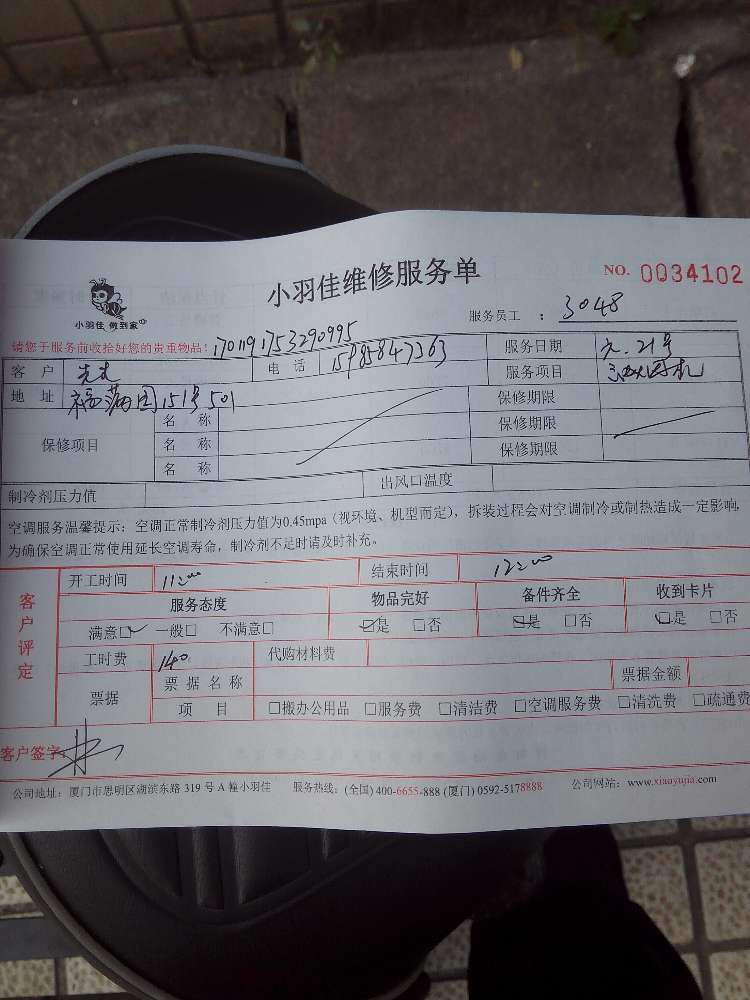 小羽佳维修服务单
NO. 0034102
小羽佳 倒到家
服务员工 : 3048
请您于服务前收拾好您的贵重物品! 1701191753290995
客 户 电 话 15985847363 服务日期 元.21号
地 址 151号501 服务项目
保修项目 名 称 保修期限
名 称 保修期限
名 称 保修期限
制冷剂压力值 出风口温度
空调服务温馨提示:空调正常制冷剂压力值为0.45mpa(视环境、机型而定),拆装过程会对空调制冷或制热造成一定影响,
为确保空调正常使用延长空调寿命,制冷剂不足时请及时补充。
客户评定
开工时间 11:00 结束时间 12:00
服务态度 物品完好 备件齐全 收到卡片
满意☑ 一般□ 不满意□ ☑是 □否 ☑是 □否 ☑是 □否
工时费 140 代购材料费
票据 票 据 名 称 票据金额
项 目 □搬办公用品 □服务费 □清洁费 □空调服务费 □清洗费 □疏通费
客户签字:
公司地址:厦门市思明区湖滨东路 319 号 A 幢小羽佳 服务热线:(全国) 400-6655-888 (厦门) 0592-5178888 公司网站:www.xiaoyujia.com